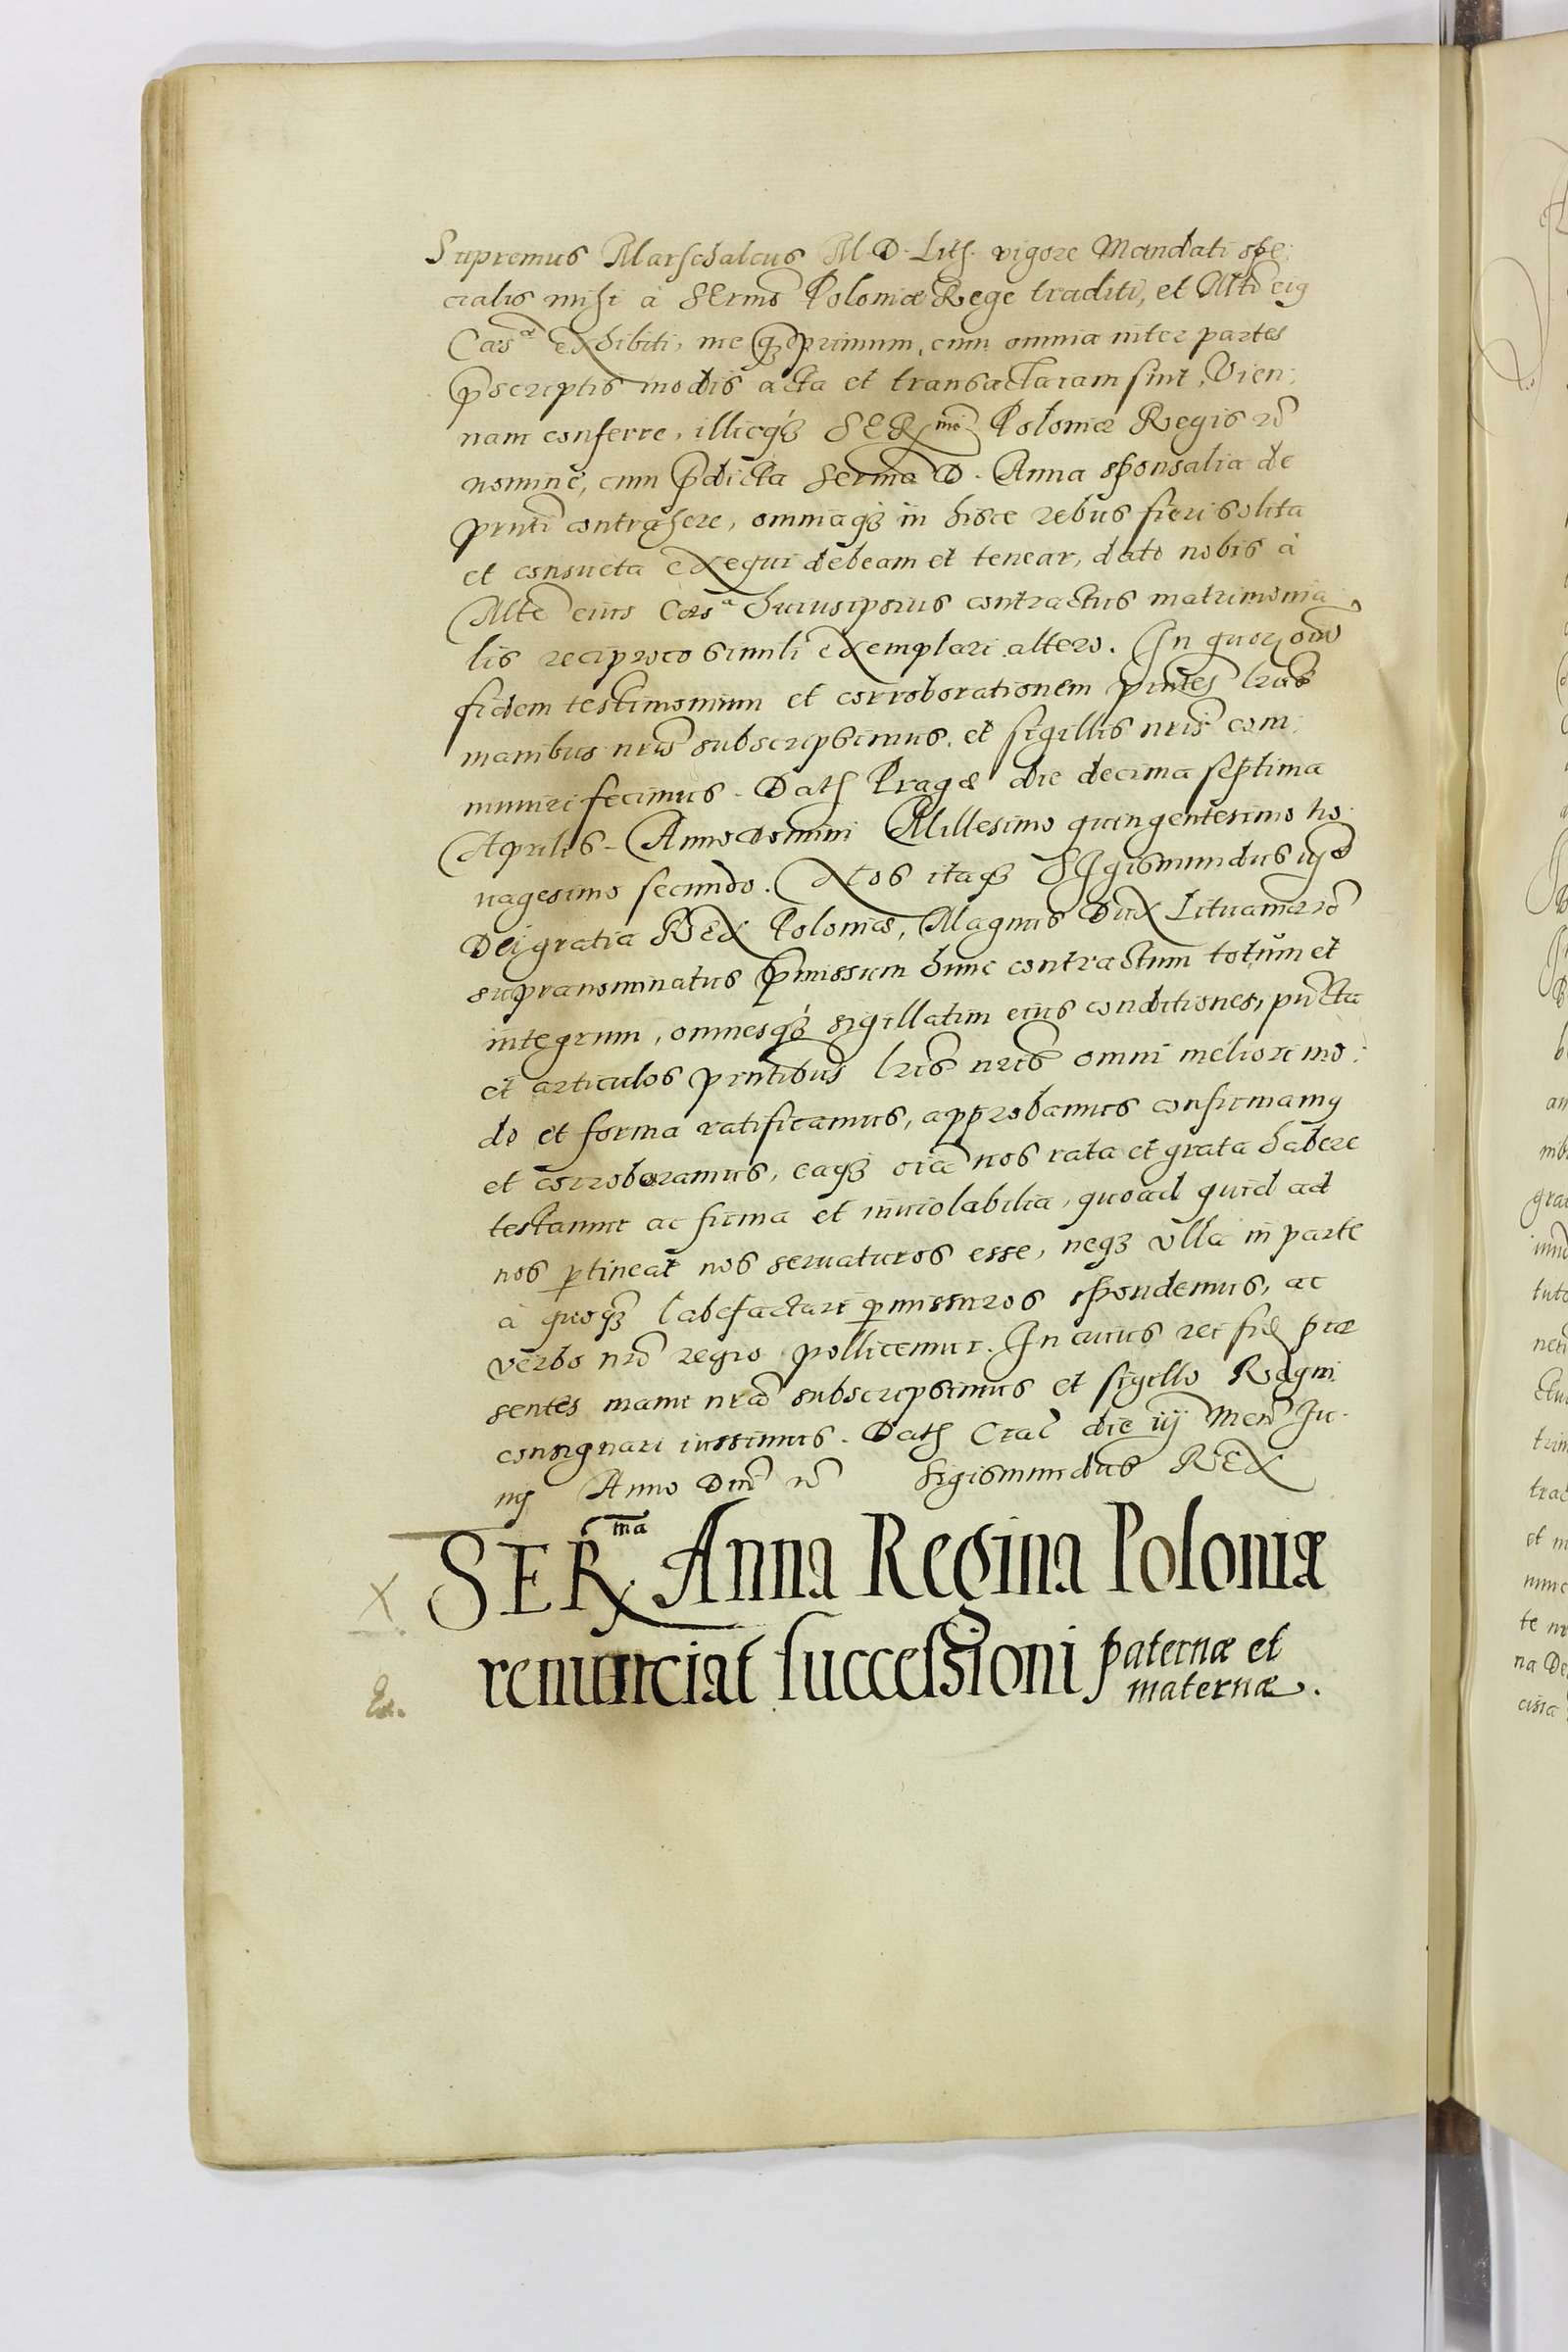 Supremus Marschalcus M. D. Lith. vigore Mandati spe:
cialis mihi à SErmo Poloniæ Rege traditi, et Altī eiꝯ
Caesª Exhibiti, me qꝫ primum, cum omnia inter partes
p̄scriptis modis acta et transacta iam sint, Vien:
nam conferre, illicqꝫ SERmi Poloniæ Regis rc̄
nomine, cum p̄dicta Serma D. Anna sponsalia de
pn̄ti contrahere, omniaqꝫ in hisce rebus fieri solita
et consueta exequi debeam et tenear, dato nobis à
Alte eius Caesª huiusipsius contractus matrimonia:
lis reciproco simili exemplari altero. In quoꝝ oīū
fidem testimonium et corroborationem p̄ntes lr̄as
manibus nr̄is subscripsimus, et sigillis nr̄is com:
muniri fecimus. Datꝭ Pragæ die decima septima
Aprilis. Anno Domini Millesimo quingentesimo no:
nagesimo secundo. Nos itaqꝫ SIgismundus iijo
DEi gratia REX Poloniæ, Magnus Dux Lituaniæ rc̄
supranominatus p̄missum hunc contractum totum et
integrum, omnesqꝫ sigillatim eius conditiones, pūcta
et articulos pn̄tibus lr̄is nr̄is omni meliori mo:
do et forma ratificamus, approbamus confirmamꝯ
et corroboramus, eaqꝫ oīa nos rata et grata habere
testamur ac firma et inviolabilia, quoad quid ad
nos ꝑtineat nos servaturos esse, neqꝫ ulla in parte
à quoqꝫ labefactari ꝑmissuros spondemus, ac
verbo nr̄o regio pollicemur. In cuius rei fidꝫ præ
sentes manu nr̄a subscripsimus et sigillo Regni
consignari iussimus. Datꝭ Crac̄ die iij Mens̄ Ju-
nij Anno Dnī rc̄ Sigismundus REX
SERma Anna Regina Poloniæ
renunciat successioni paternæ et
maternæ.
X
Ex.